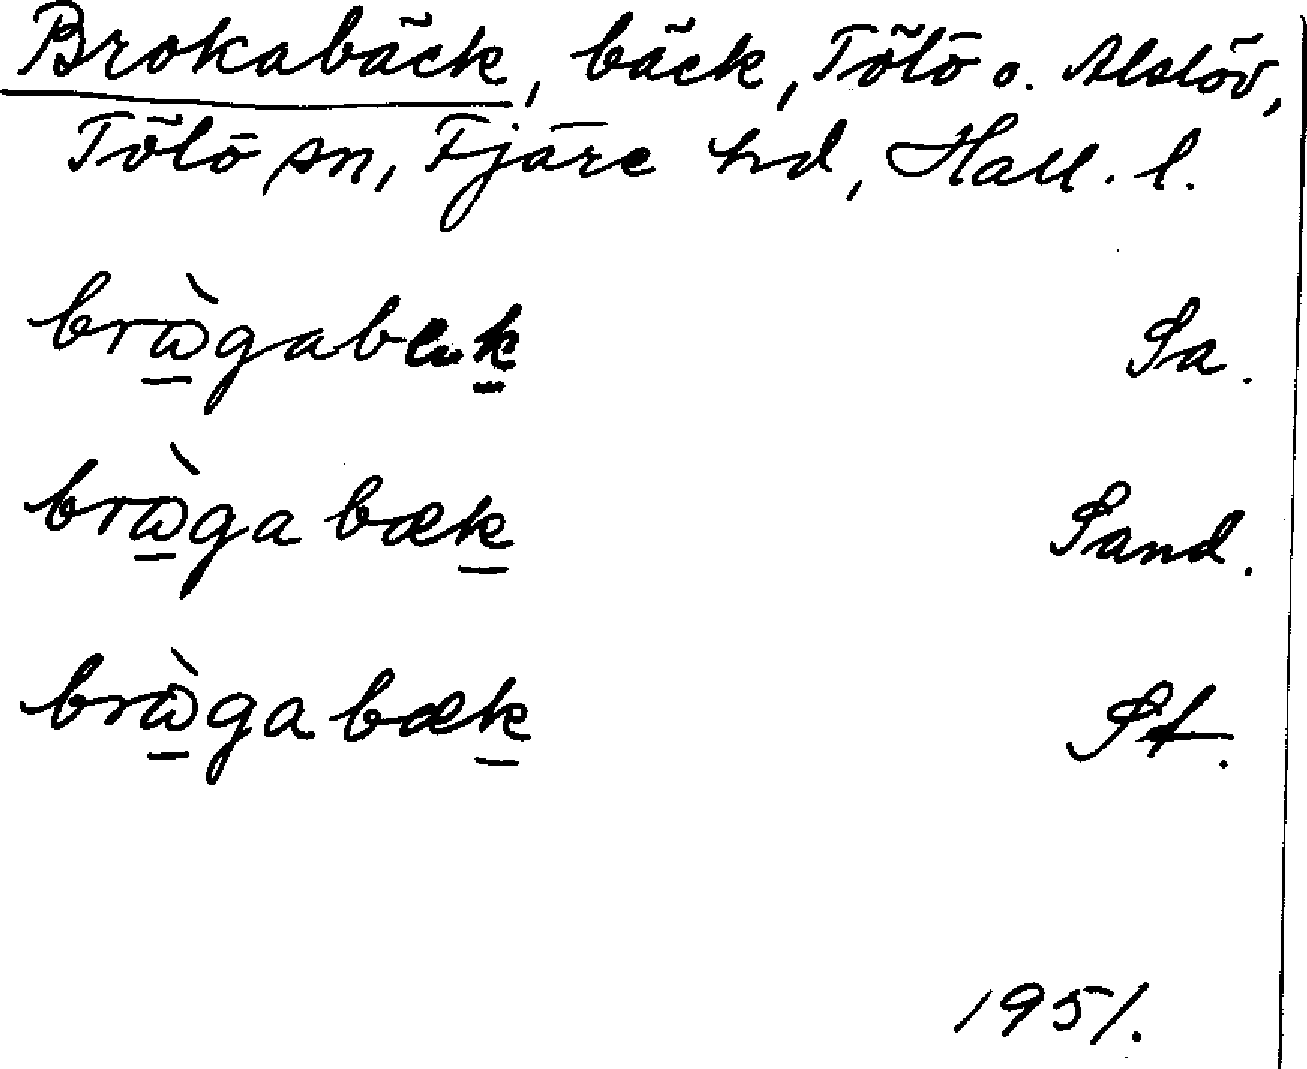 Brokabäck, bäck, Tölö o. Alslöv,
Tölö sn, Fjäre hd, Hall. l.
brὼ̲gabæk̲ Sa.
brὼ̲gabæk̲ Sand.
brὼ̲gabæk̲ St.
1951.